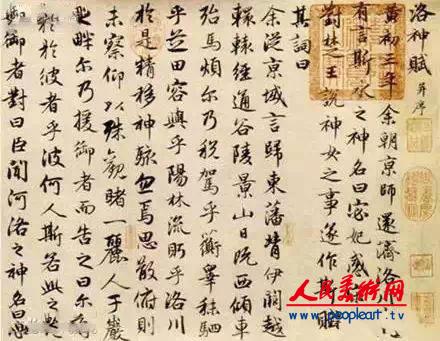 洛神賦 并序
黃初三年余朝京師還濟洛川
有言斯水之神名曰宓妃感
對楚王說神女之事遂作斯賦
其詞曰
余從京城言歸東藩背伊闕越
轘轅經通谷陵景山日既西傾車
殆馬煩尔乃稅駕乎蘅皋秣駟
乎芝田容與乎陽林流眄乎洛川
於是精移神駭忽焉思散俯則
未察仰以殊觀睹一麗人于巖
之畔尔乃援御者而告之曰尔有
於彼者乎彼何人斯若此之豔
御者對曰臣聞河洛之神名曰宓
人民美術网
www.peopleart.tv